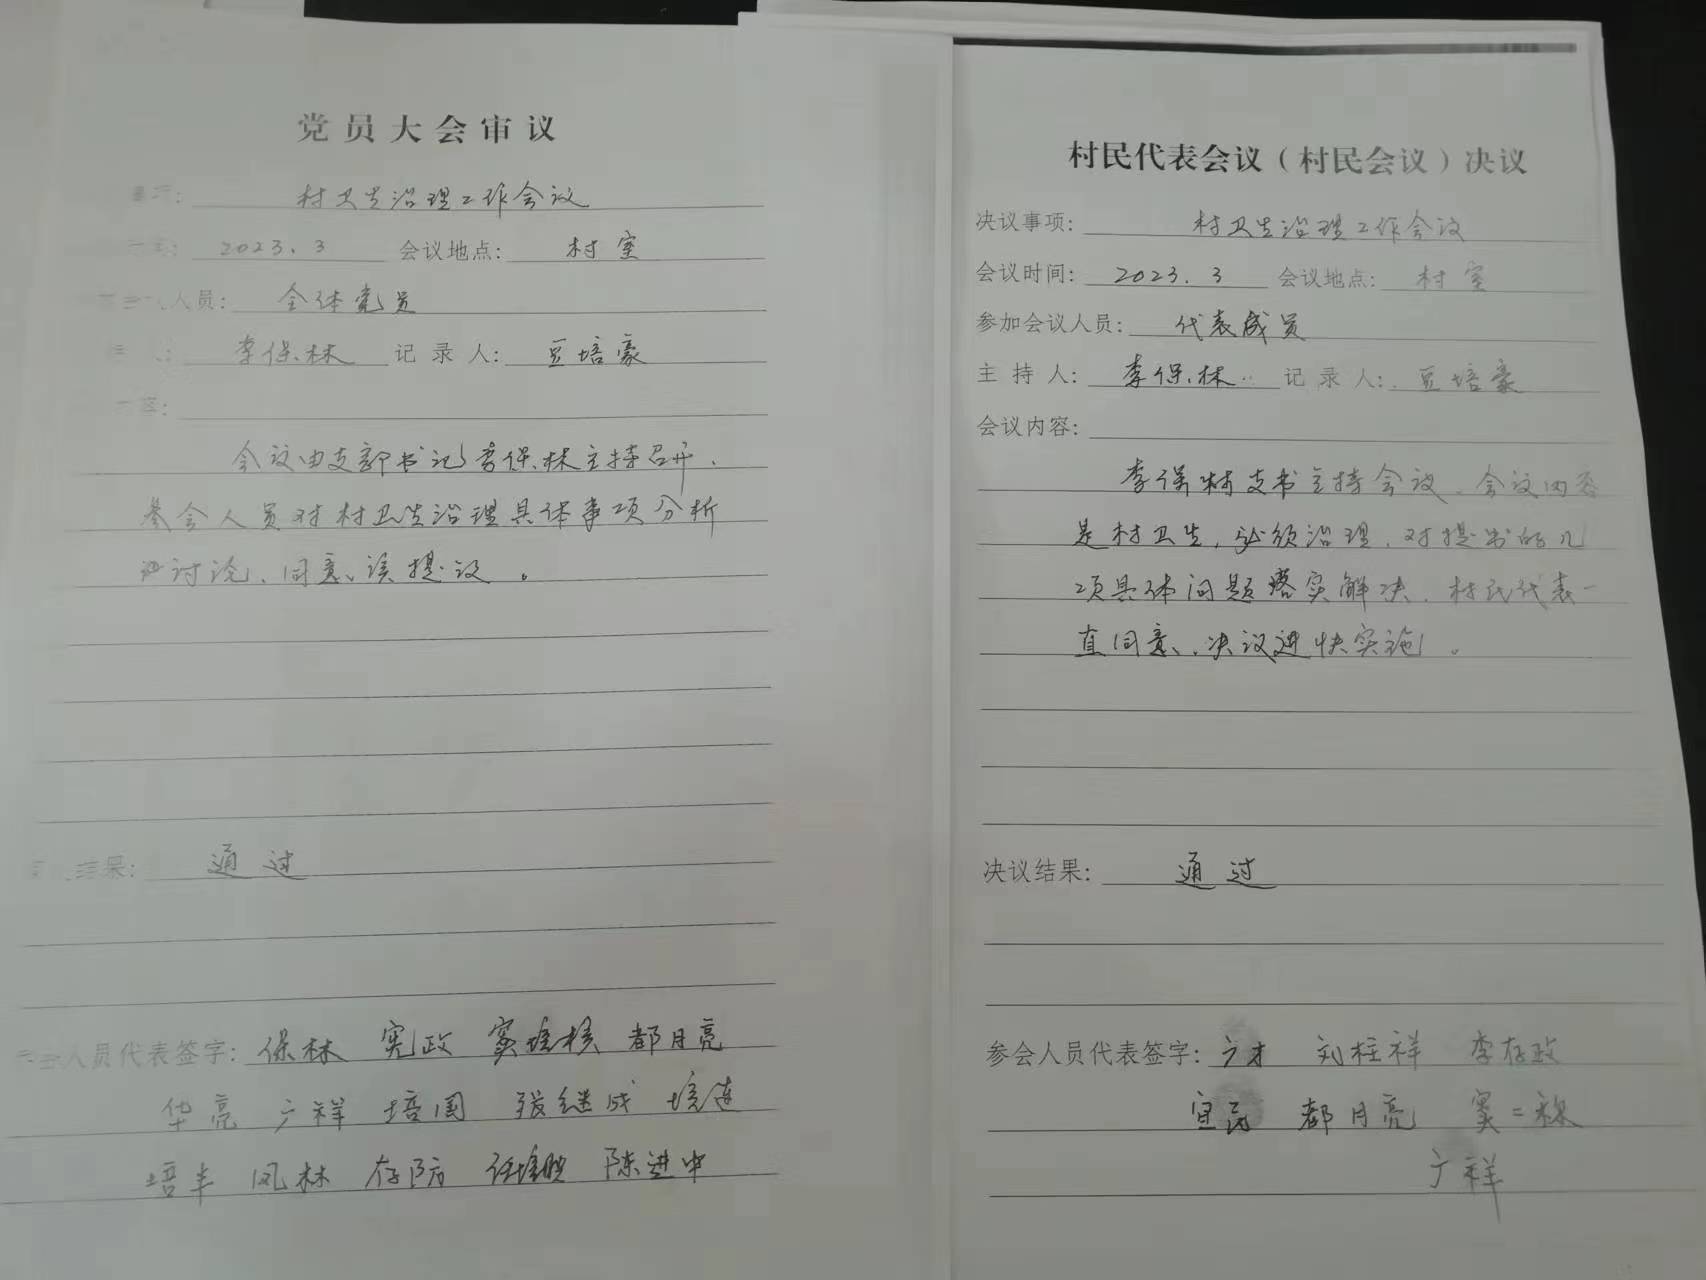 党员大会审议
村卫生治理工作会议
2023.3 会议地点: 村室
人员: 全体党员
李保林 记录人: 豆培豪
容:
会议由支部书记李保林主持召开.
参会人员对村卫生治理具体事项分析
讨论、同意该提议。
结果: 通过
人员代表签字: 保林 宪政 窦培核 都月亮
华亮 广祥 培国 张继成 培连
培丰 凤林 存防 陈进中
村民代表会议(村民会议)决议
决议事项: 村卫生治理工作会议
会议时间: 2023.3 会议地点: 村室
参加会议人员: 代表成员
主持人: 李保林 记录人: 豆培豪
会议内容:
李保林支书主持会议、会议内容
是村卫生,必须治理,对提出的几
项具体问题落实解决,村民代表一
直同意、决议进快实施。
决议结果: 通过
参会人员代表签字: 广才 刘柱祥 李存政
宜民 都月亮 窦二稳
广祥